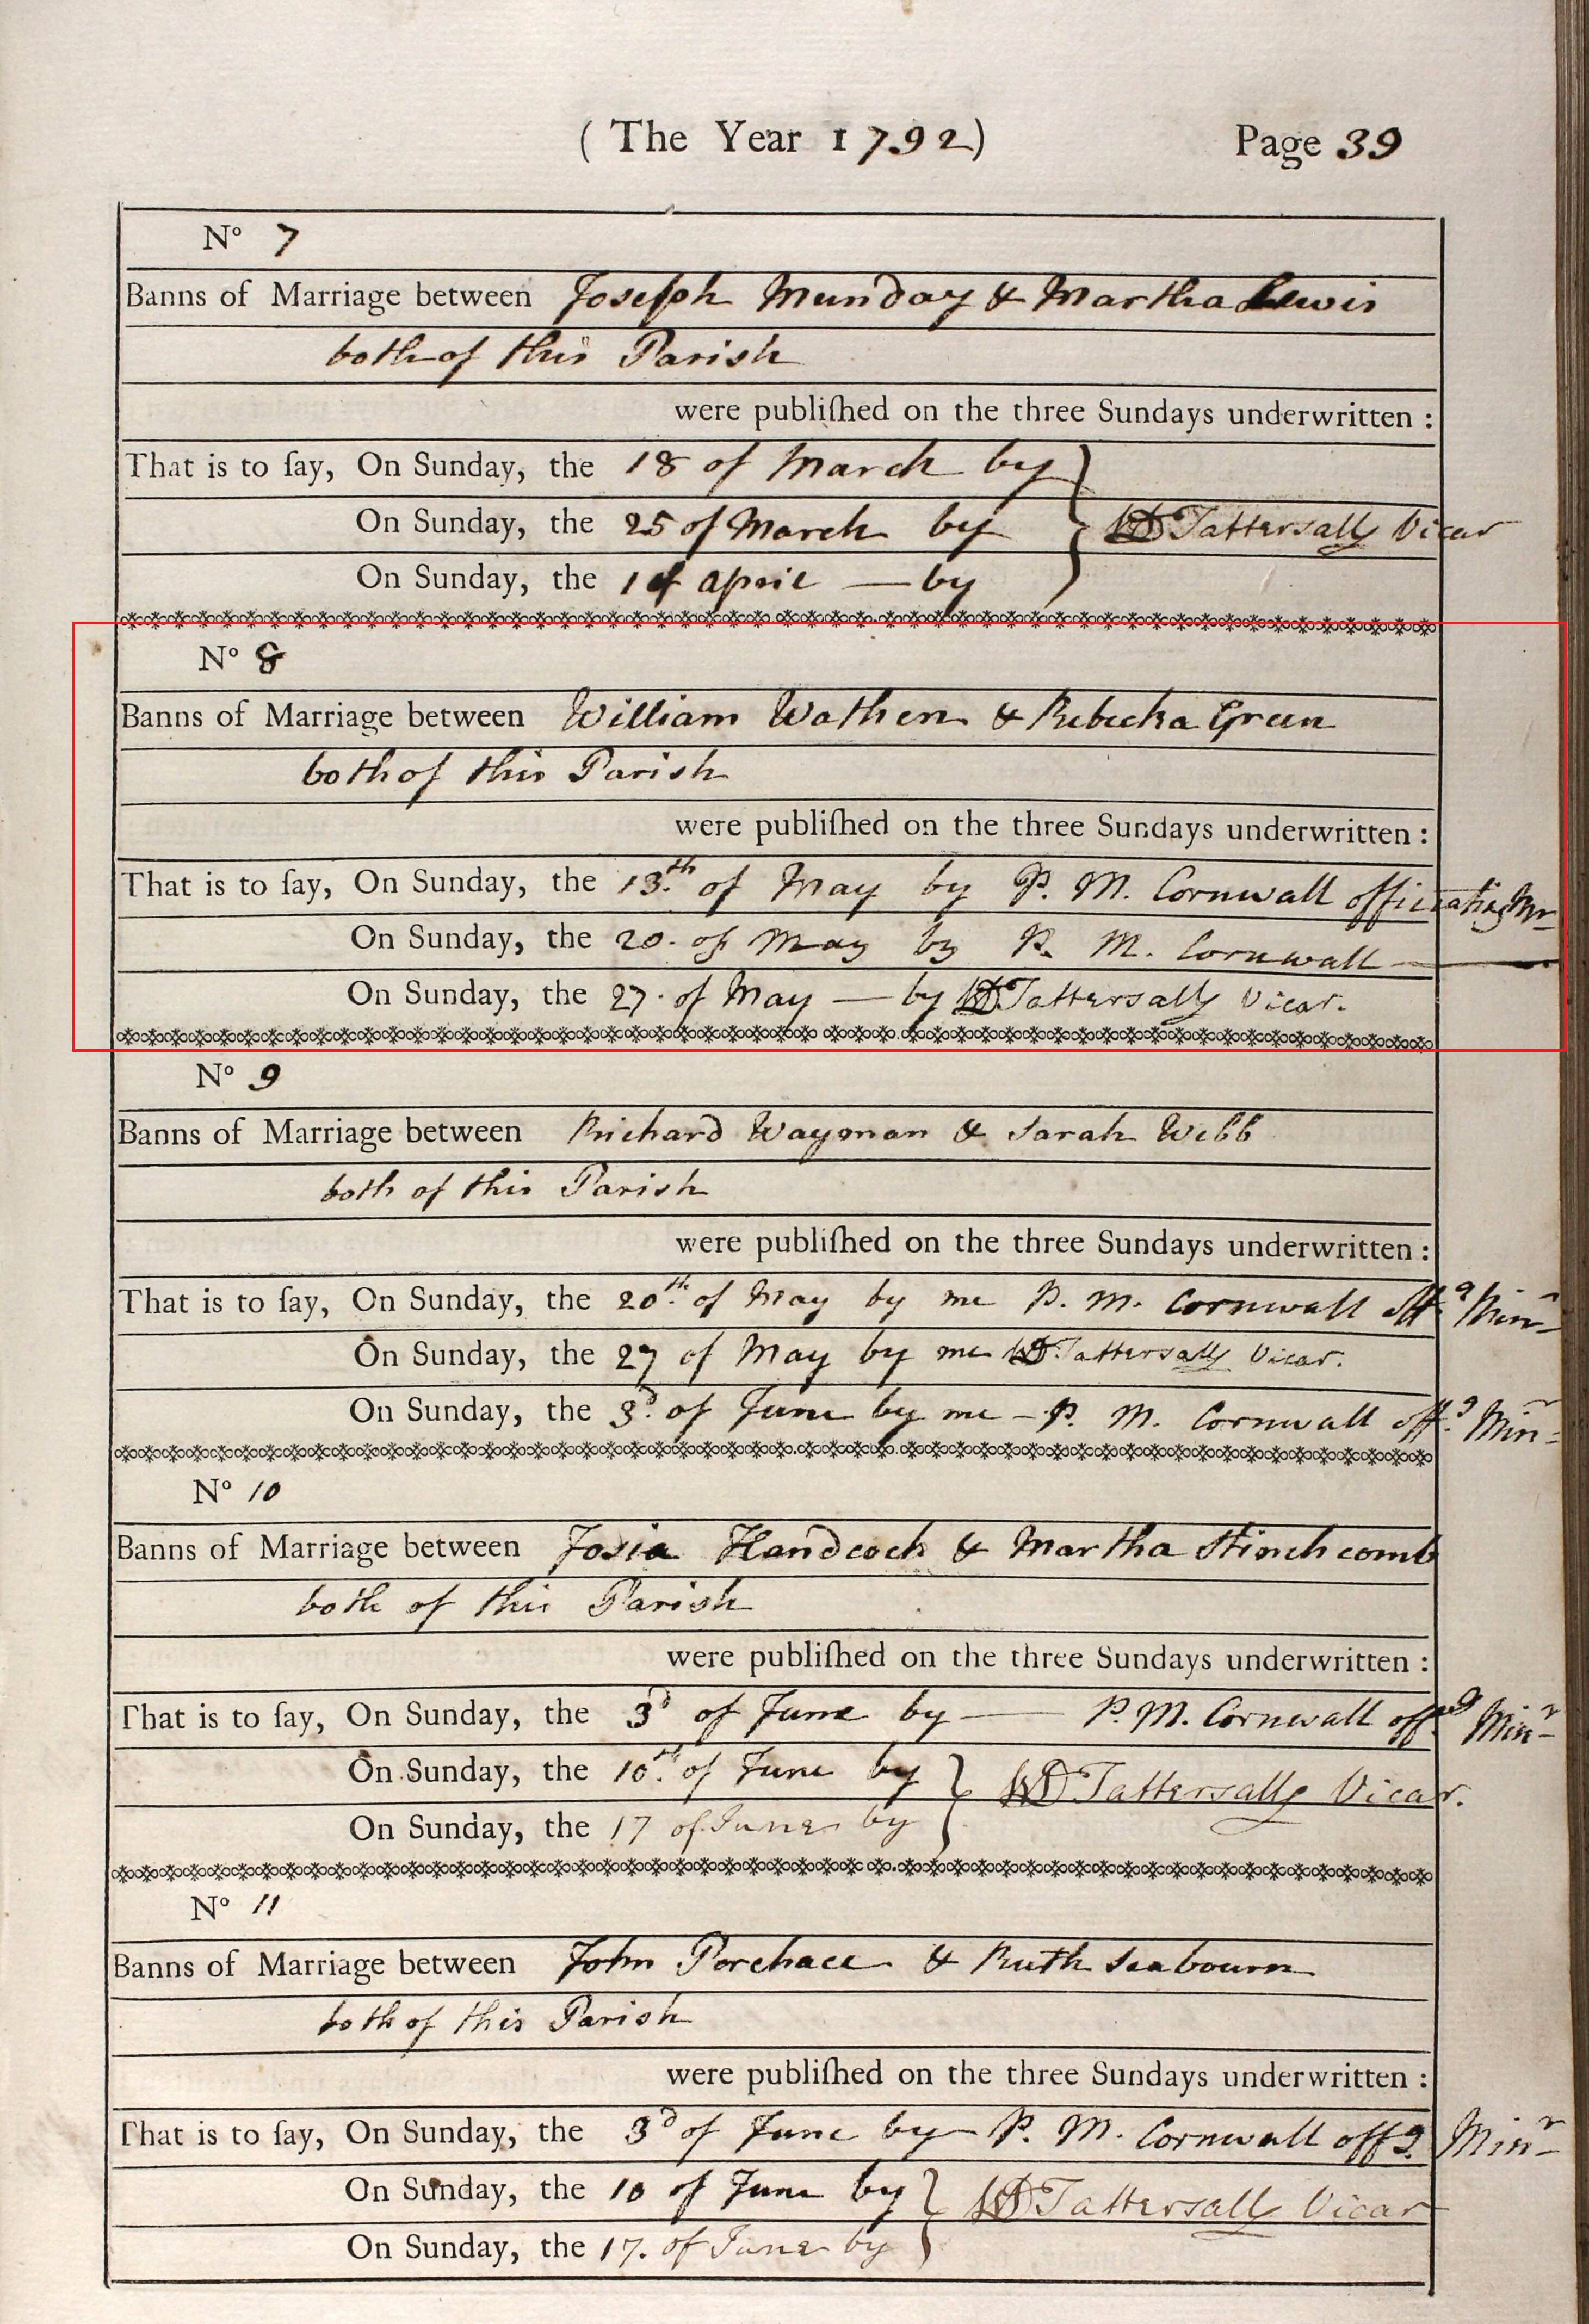 ( The Year 1792) Page 39
No 7
Banns of Marriage between Joseph Munday & Martha Lewis
both of this Parish
were publiſhed on the three Sundays underwritten :
That is to ſay, On Sunday, the 18 of March by
On Sunday, the 25 of March by WD Tattersall Vicar
On Sunday, the 1 of April — by
No 8
Banns of Marriage between William Wathen & Rebecka Green
both of this Parish
were publiſhed on the three Sundays underwritten :
That is to ſay, On Sunday, the 13th of May by P. M. Cornwall officiating Mr
On Sunday, the 20. of May by P. M. Cornwall —
On Sunday, the 27. of May — by WD Tattersall Vicar.
No 9
Banns of Marriage between Richard Wayman & Sarah Webb
both of this Parish
were publiſhed on the three Sundays underwritten :
That is to ſay, On Sunday, the 20th of May by me P. M. Cornwall offg Minr
On Sunday, the 27 of May by me WD Tattersall Vicar.
On Sunday, the 3d of June by me – P. M. Cornwall offg Minr
No 10
Banns of Marriage between Josia Handcock & Martha Stinchcomb
both of this Parish
were publiſhed on the three Sundays underwritten :
That is to ſay, On Sunday, the 3d of June by — P. M. Cornwall offg Minr
On Sunday, the 10th of June by WD Tattersall Vicar.
On Sunday, the 17 of June by
No 11
Banns of Marriage between John Porchace & Ruth Seabourn
both of this Parish
were publiſhed on the three Sundays underwritten :
That is to ſay, On Sunday, the 3d of June by P. M. Cornwall offg Minr
On Sunday, the 10 of June by WD Tattersall Vicar
On Sunday, the 17. of June by